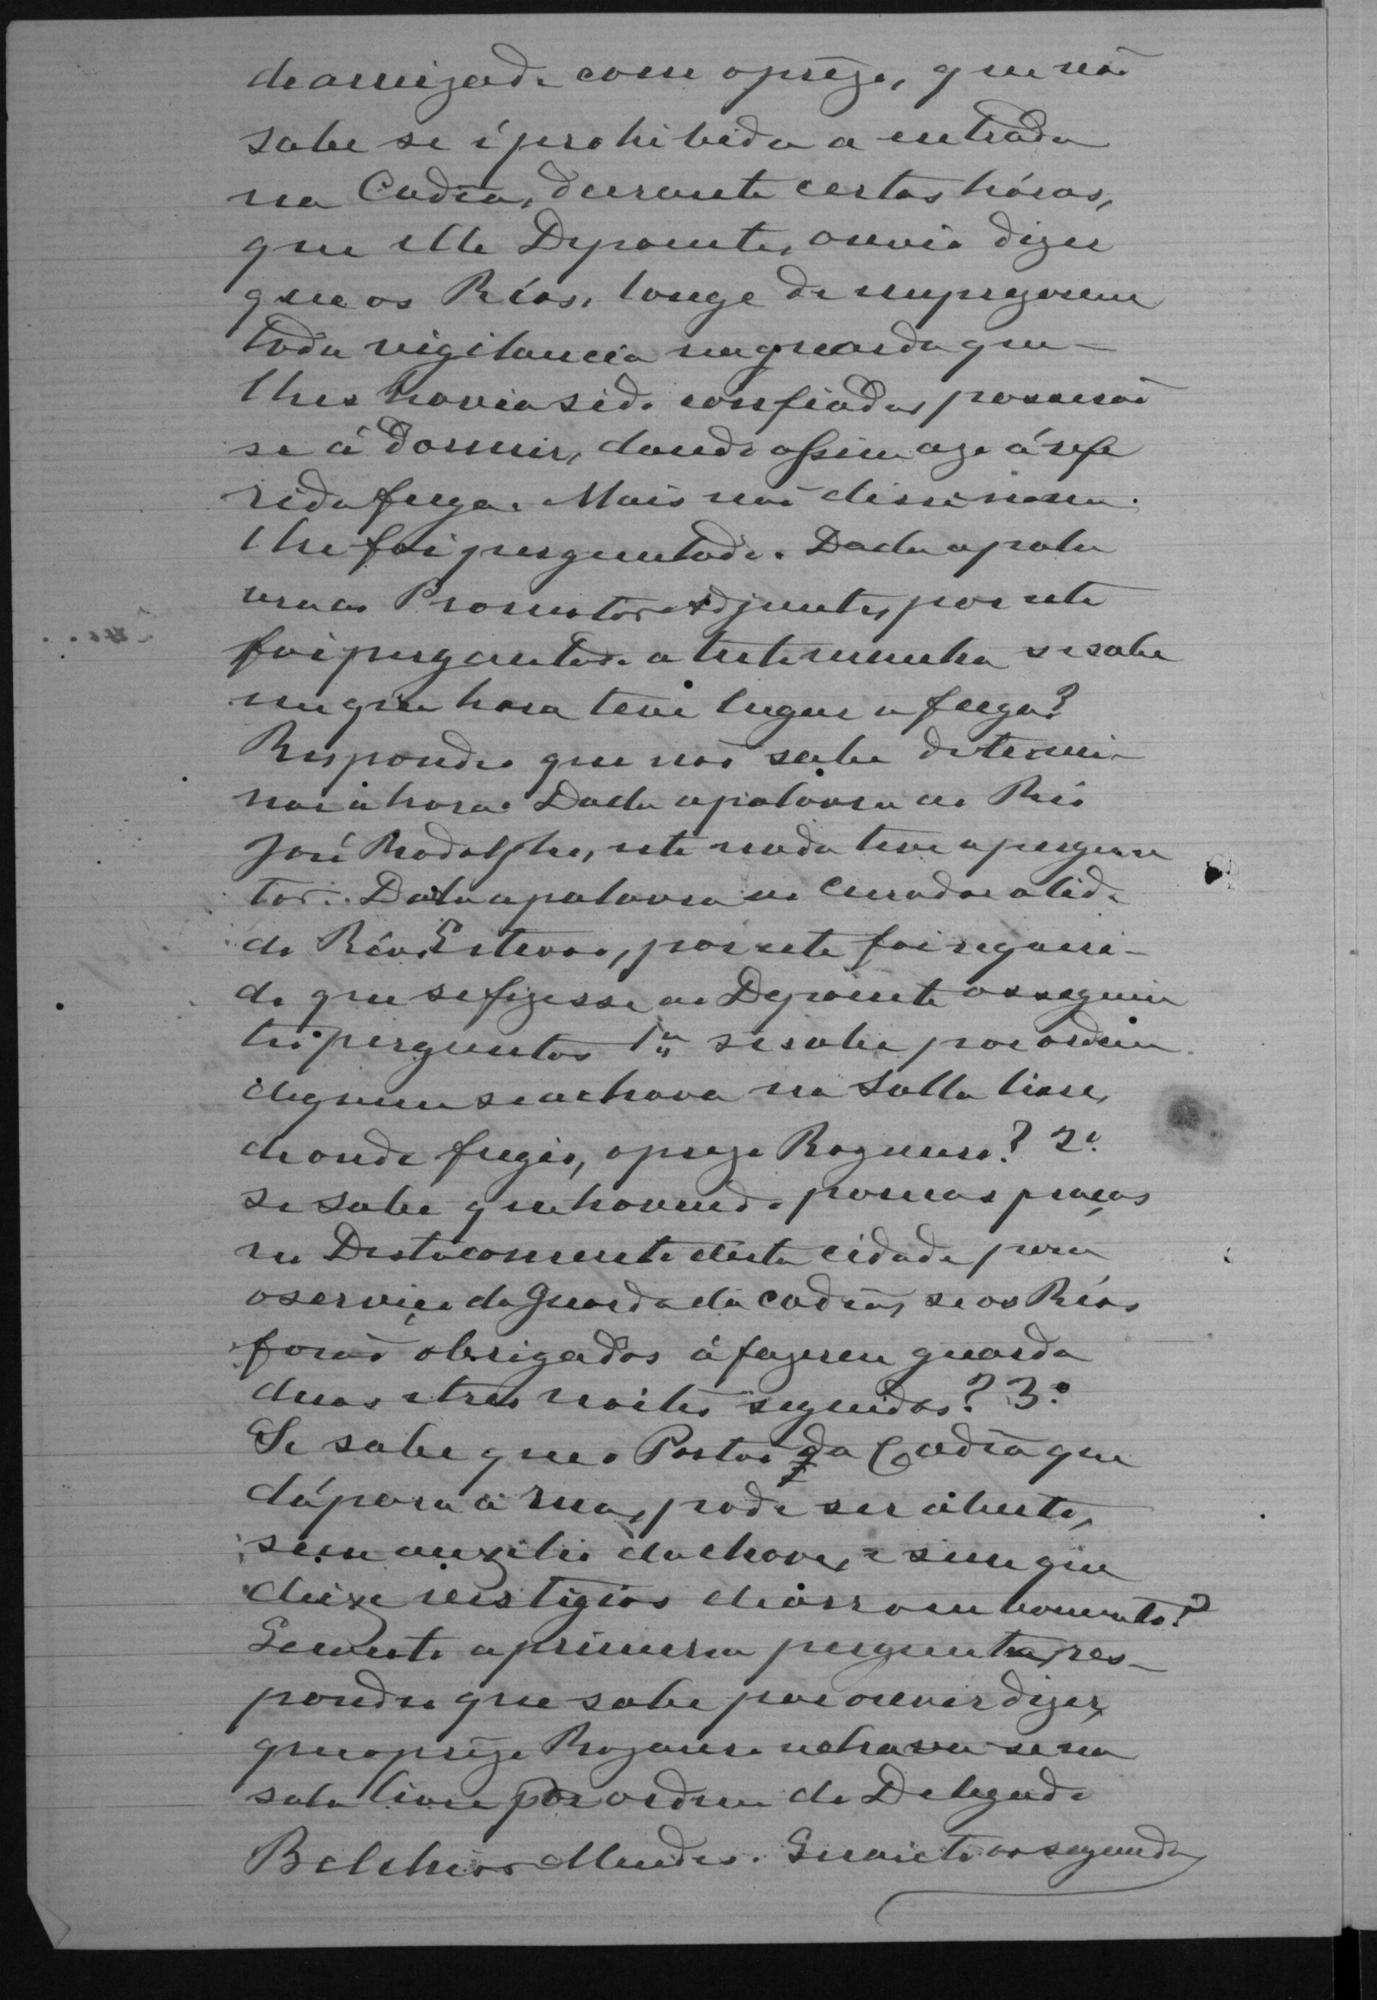 de amizade com o prezo, que não
sabe se é prohibida a entrada
na Cadêa, durante certas hóras,
que elle Depoente, ouvio dizer
que os Réos, longe de empregarem
toda vigilancia na guarda que
lhes havia sido confiada, posserão
se á dormir, dando assim azo á refe
rida fuga. Mais não disse nem
lhe foi perguntado. Dada a pala
vra ao Promotor Adjunto, por este
foi perguntado a testemunha se sabe
em que hora teve lugar a fuga?
Respondeo que não sabe determi-
nar a hora. Dada a palavra ao Réo
José Rodolpho, este nada teve a pergun
tar. Dada a palavra ao Curador a lide
do Réo Estevão, por este foi requeri-
do que se fizesse ao Depoente as seguin
tes perguntas 1ª se sabe por ordem
de quem se achava na Salla livre,
de onde fugio, o prezo Rozeno? 2ª
se sabe que havendo poucas praças
no Destacamento desta cidade para
o serviço da Guarda da cadêa, se os Réos
forão obrigados á fazerem guarda
duas e tres noites seguidas? 3ª
Se sabe que o Portão da Cadêa que
dá para a rua, pode ser aberto,
sem auxilio da chave, e sem que
deixe vestigios de arrombamento?
Quanto a primeira pergunta, res-
pondeo que sabe por ouvir dizer,
que o prezo Rozeno achava-se na
sala livre por ordem do Delegado
Belchior Mendes. Quanto as segunda